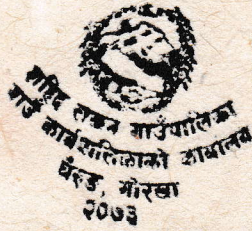 शहिद लखन गाउँपालिका
गाउँ कार्यपालिकाको कार्यालय
घ्याल्चोक, गोरखा
२०७३